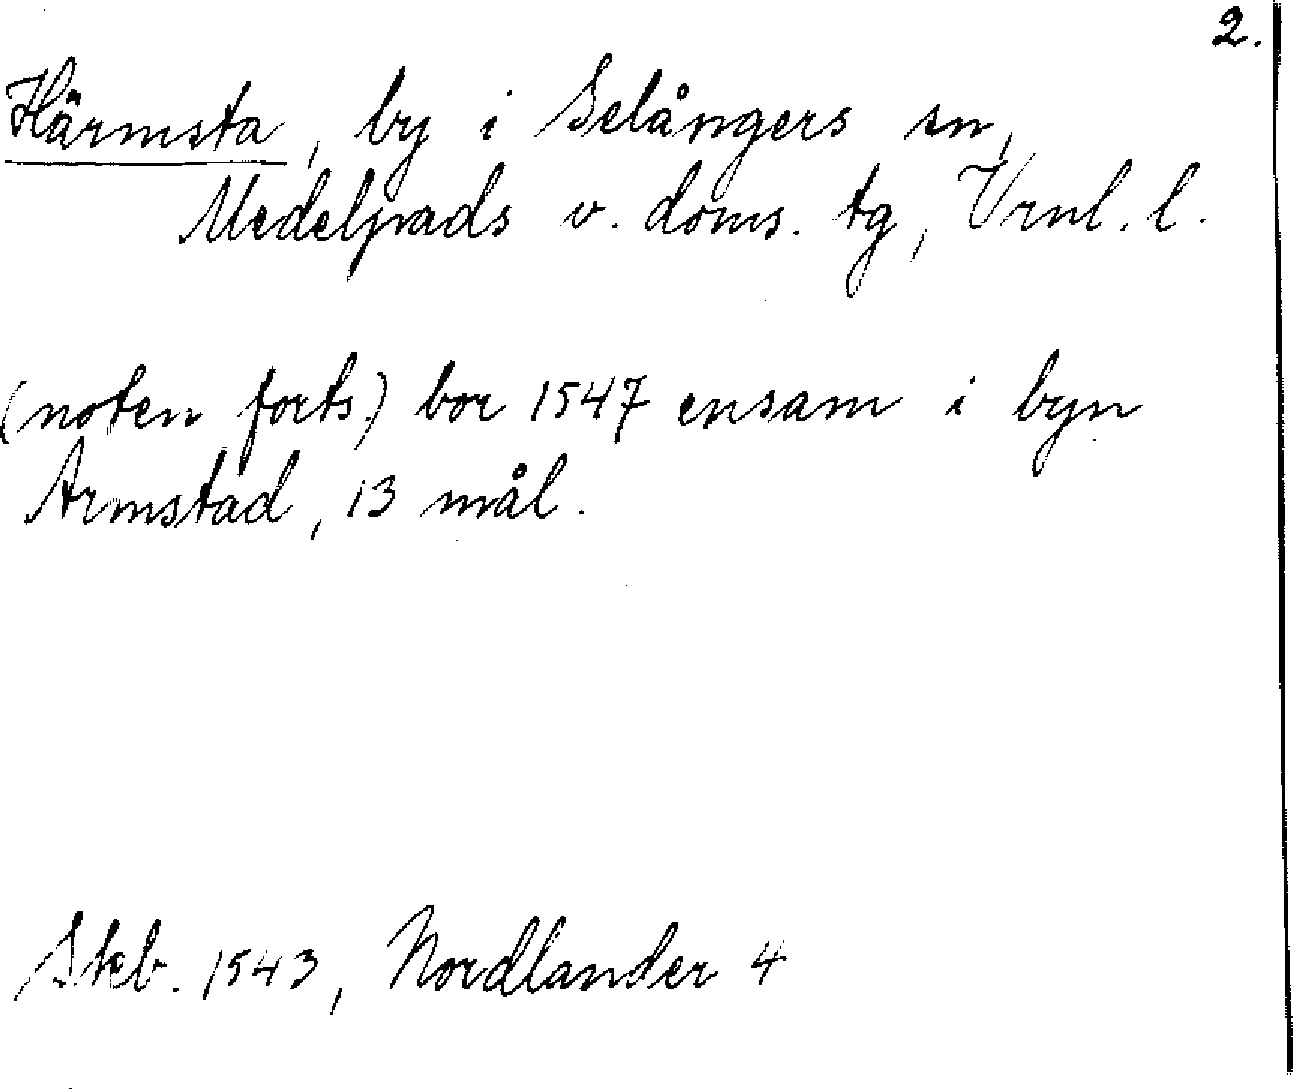 2.
Härmsta, by i Selångers sn,
Medelpads v. doms. tg, Vrnl. l.
(noten forts) bor 1547 ensam i byn
Armstad, 13 mål.
Skb. 1543, Nordlander 4